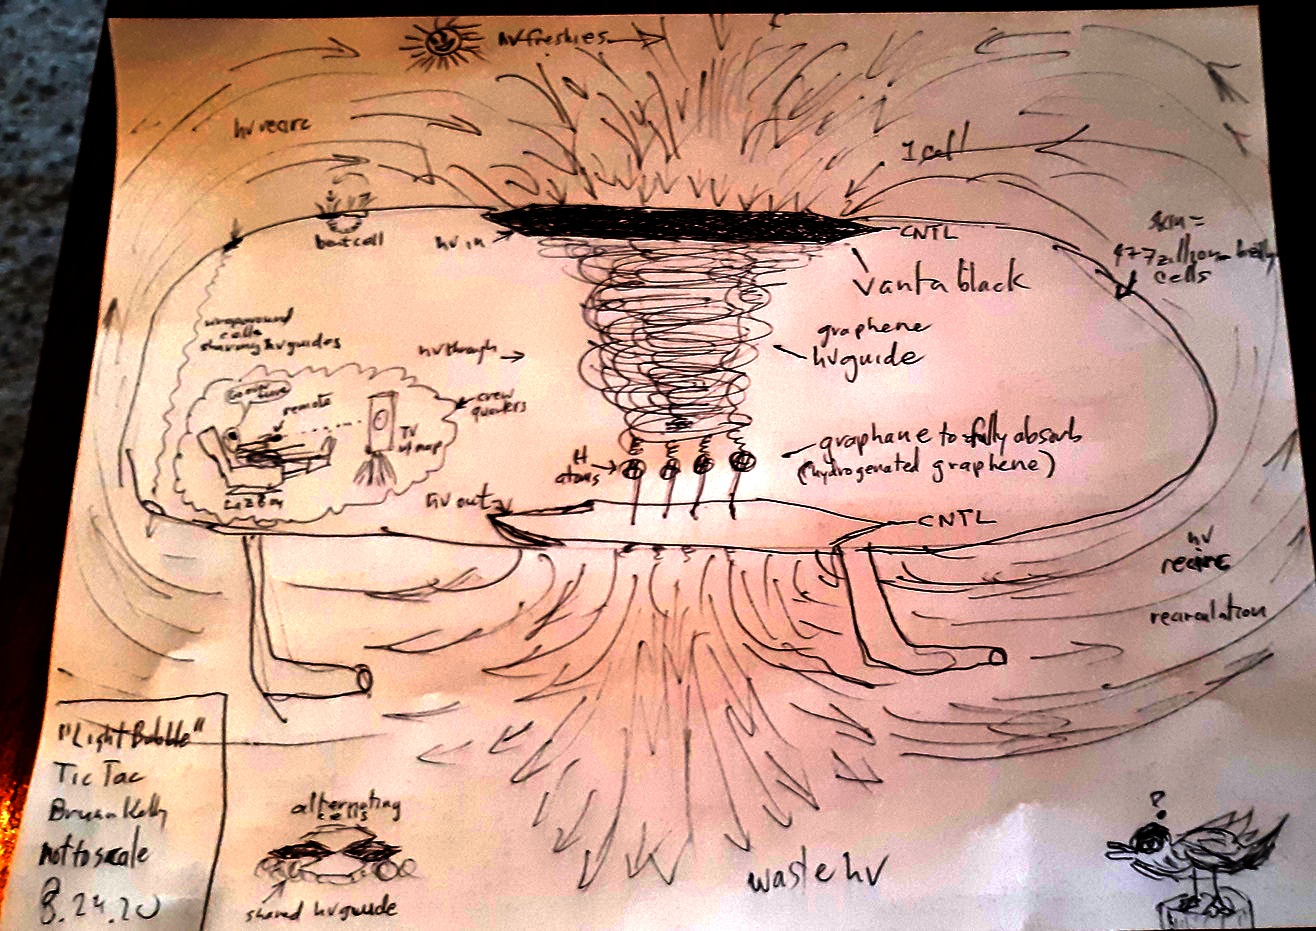 hv freshies
hv recirc
1 cell
boat cell
hv in
CNTL
skin =
477 zillion
cells
Vanta black
wraparound
cells
sharing hv guides
hv through
graphene
hv guide
crew
quarters
remote
TV
w/map
LaZBoy
H
atoms
graphane to fully absorb
(hydrogenated graphene)
hv out
CNTL
hv
recirc
recirculation
"Light Bubble"
Tic Tac
Bryan Kelly
not to scale
8.24.20
alternating
cells
shared hv guide
waste hv
?